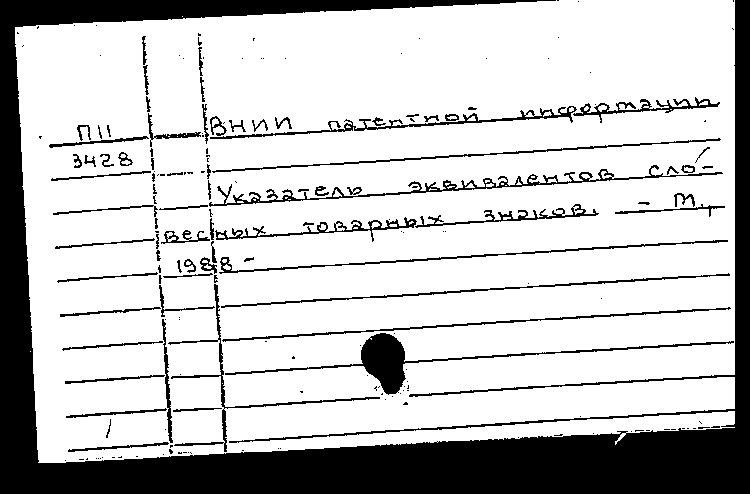 П11 ВНИИ патентной информации
3428
Указатель эквивалентов сло-
весных товарных знаков. — М.,
1988 -